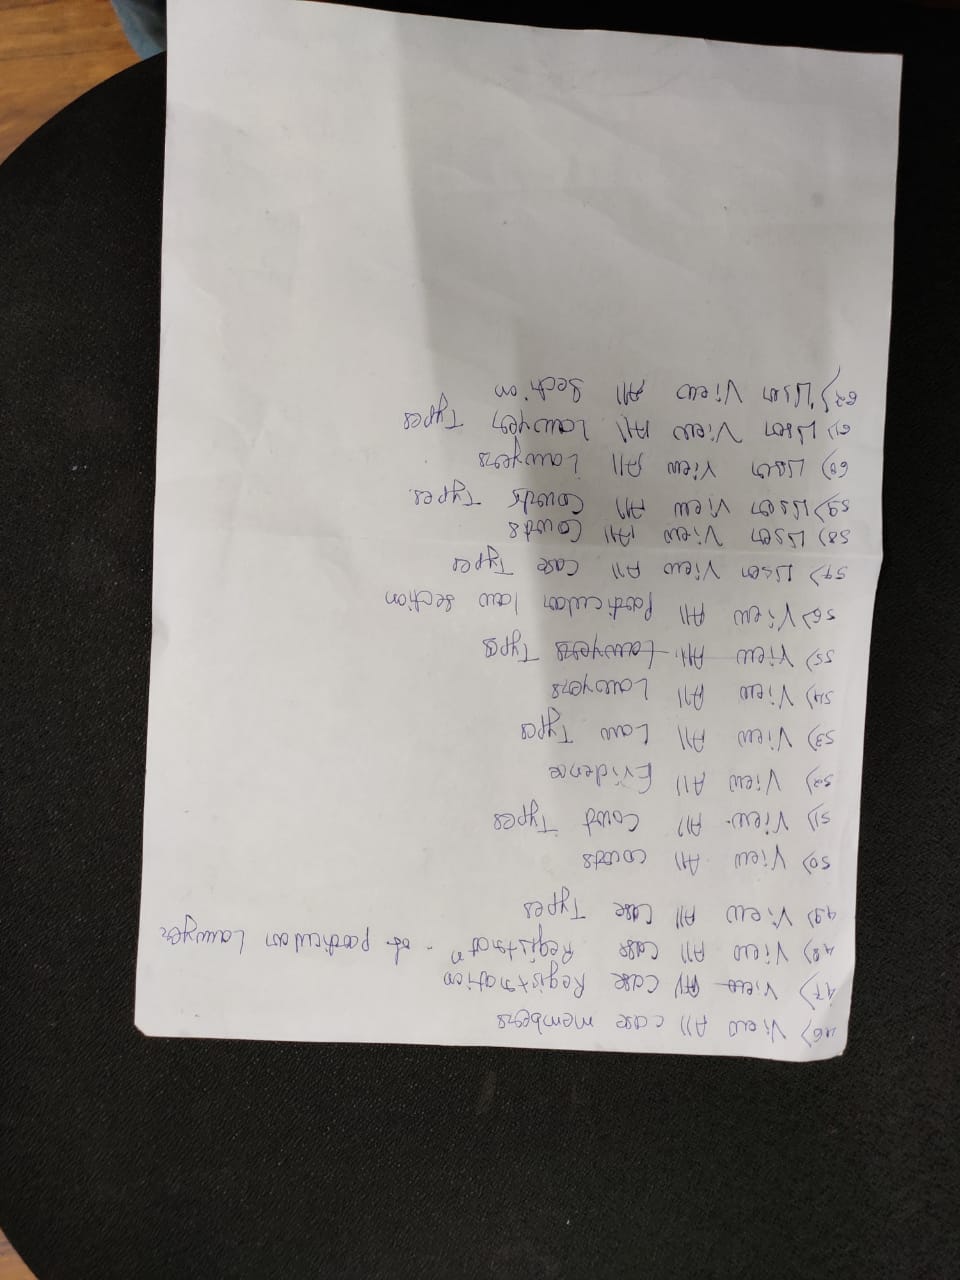 46) View All case members
47) View All Case Registration
48) View All Case Registratn - of particular Lawyer
49) View All Case Types
50) View All courts
51) View All Court Types
52) View All Evidence
53) View All Law Types
54) View All Lawyers
55) View All Lawyers Types
56) View All Particular law section
57) User View All Case Types
58) User View All Courts
59) User View All Courts Types.
60) User View All Lawyers
61) User View All Lawyer Types
62) User View All Section